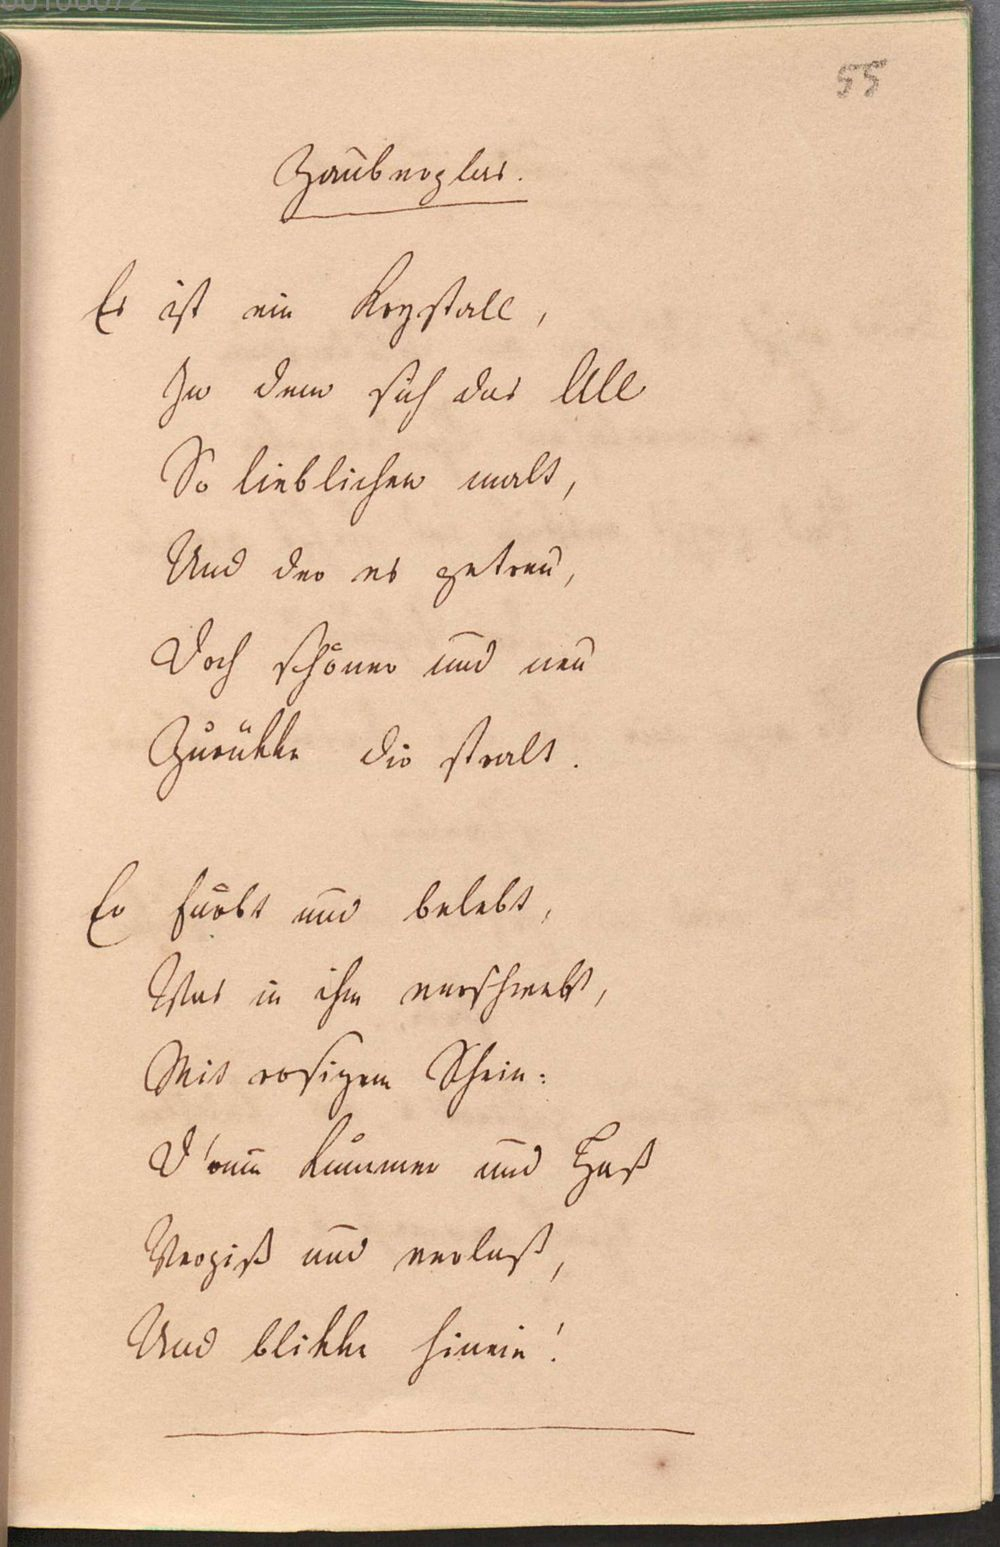 00106072
55
Zauberglas.
Es ist ein Krystall,
In dem sich das All
So lieblichen malt,
Und der es getreu,
Doch schöner und neu
Zurükke dir stralt.
Er färbt und belebt,
Was in ihm verschwebt,
Mit rosigem Schein:
D'rum Kummer und Haß
Vergiß und verlaß,
Und blikke hinein!